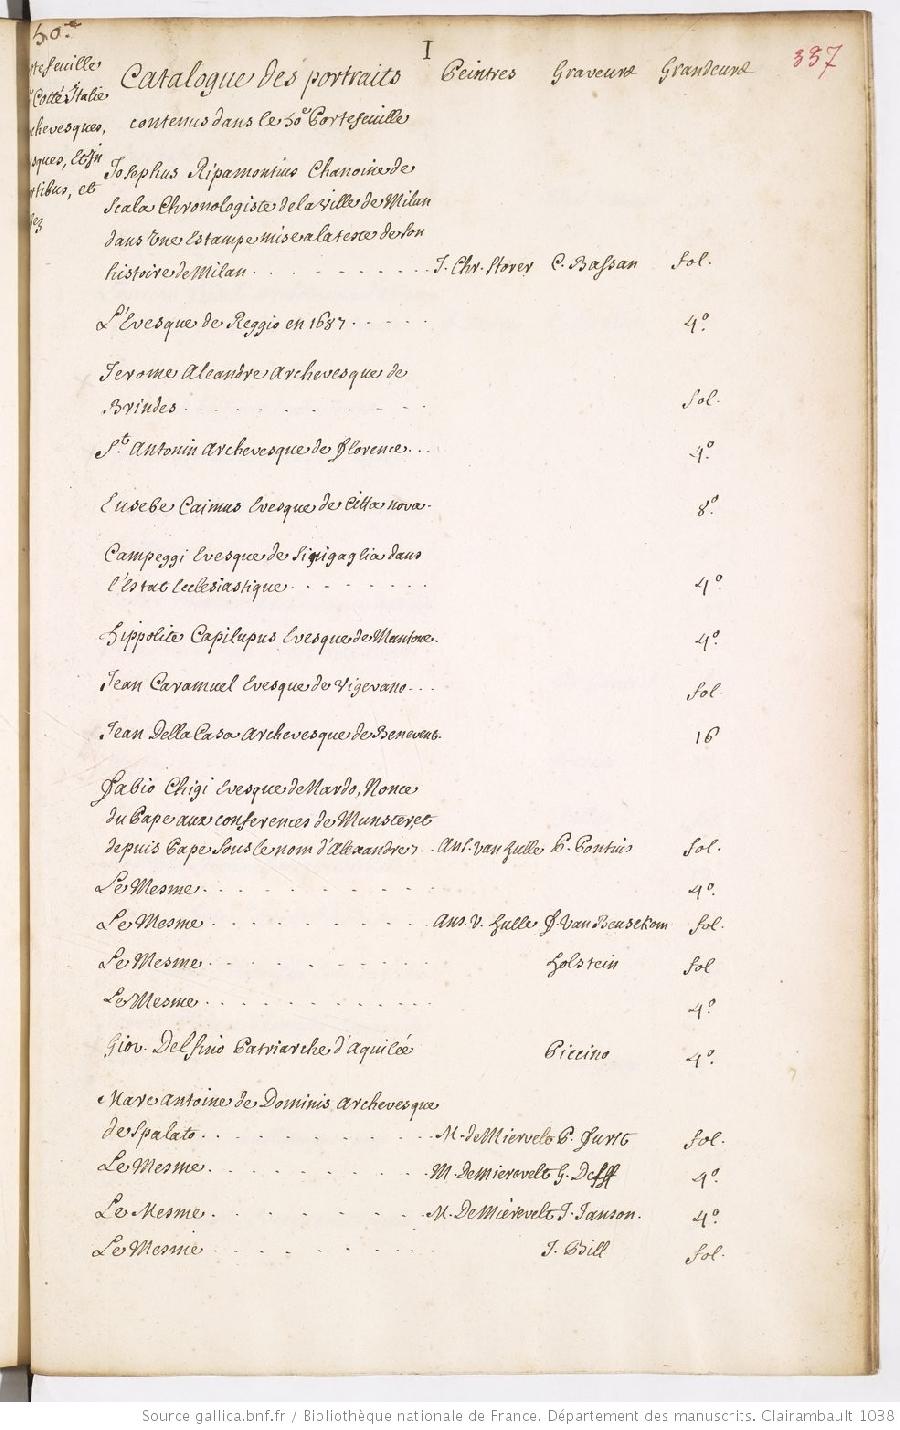 50.e
I
337
Catalogue des portraits Peintres Graveurs Grandeurs
contenus dans le 50e Portefeuille
tefeuille
Cotté Italie
chevesques,
sques, et In
rtibus, et
bez
Josephus Ripamontius Chanoine de
Scala Chronologiste de la ville de Milan
dans Une Estampe mise a la teste de son
histoire de Milan . . . . . . . . . . J. Chr. Storer C. Bassan fol.
L'Evesque de Reggio en 1687 . . . . . 4.o
Jerome Aleandre Archevesque de
Brindes . . . . . . . . . fol.
St. Antonin Archevesque de Florence . . . 4.o
Eusebe Caimus Evesque de Citta nova . 8.o
Campeggi Evesque de Sinigaglia dans
l'Estat Ecclesiastique . . . . . . . 4.o
Hippolite Capilupus Evesque de Mantoue . 4.o
Jean Caramuel Evesque de Vigevano . . . fol
Jean Della Casa Archevesque de Benevent. 16
Fabio Chigi Evesque de Nardo, Nonce
du Pape aux conferences de Munster et
depuis Pape sous le nom d'Alexandre 7 . Ans. van Hulle P. Pontius fol.
Le Mesme . . . . . . . . . . 4.o
Le Mesme . . . . . . . . . . Ans. v. Hulle F. Van Beusekom fol.
Le Mesme . . . . . . . . . . Holstein fol
Le Mesme . . . . . . . . . . 4.o
Giov. Delfino Patriarche d'Aquilée Piccino 4.o
Marc Antoine de Dominis Archevesque
de Spalato . . . . . . . . . . M. de Mierevelt P. Furst fol.
Le Mesme . . . . . . . . . . M. de Mierevelt G. Delff 4.o
Le Mesme . . . . . . . . . . M. De Mierevelt J. Janson. 4.o
Le Mesme . . . . . . . . . . J. Bill fol.
Source gallica.bnf.fr / Bibliothèque nationale de France. Département des manuscrits. Clairambault 1038